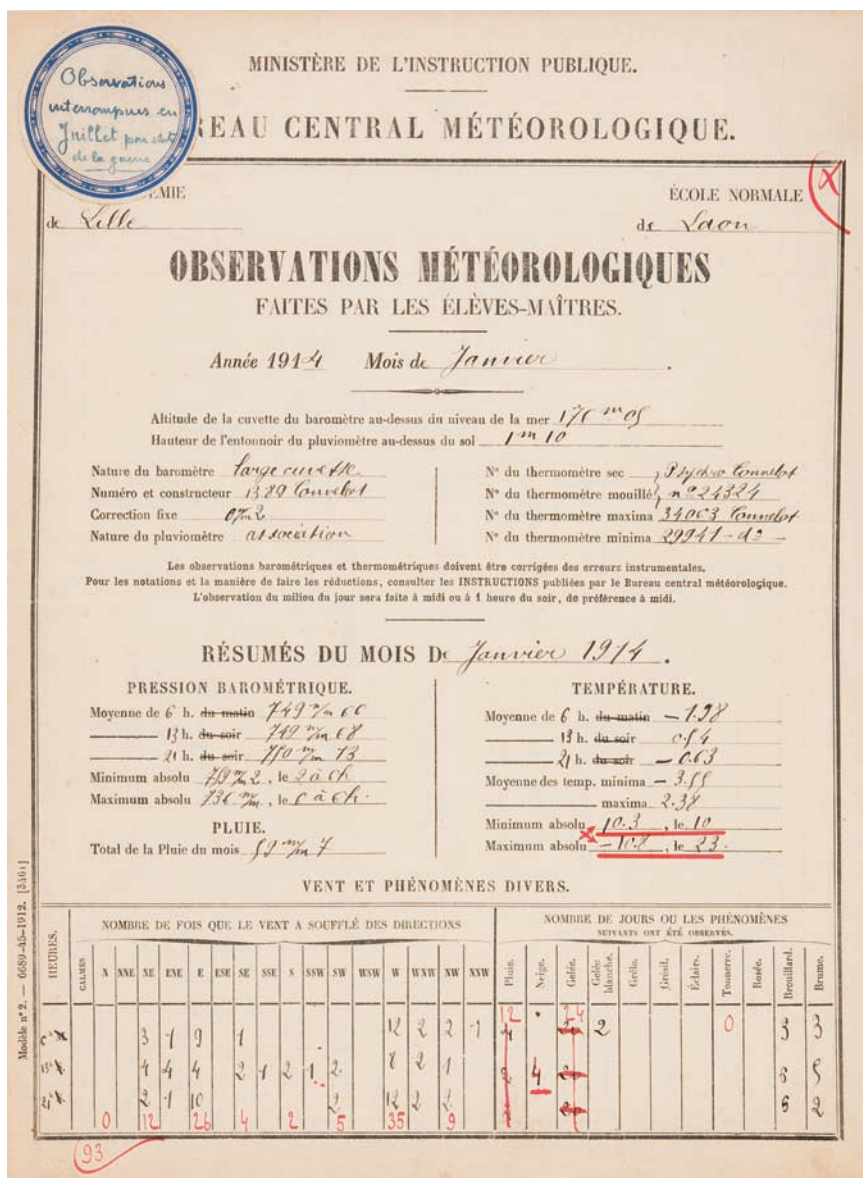 MINISTÈRE DE L'INSTRUCTION PUBLIQUE.
Observations
interrompues en
Juillet par suite
de la guerre
REAU CENTRAL MÉTÉOROLOGIQUE.
ÉMIE
de Lille
ÉCOLE NORMALE
de Laon
X
OBSERVATIONS MÉTÉOROLOGIQUES
FAITES PAR LES ÉLÈVES-MAÎTRES.
Année 1914 Mois de Janvier.
Altitude de la cuvette du baromètre au-dessus du niveau de la mer
Hauteur de l'entonnoir du pluviomètre au-dessus du sol 1m 10
Nature du baromètre large cuvette
Numéro et constructeur 1389
Correction fixe
Nature du pluviomètre association
N° du thermomètre sec Psychro
N° du thermomètre mouillé n° 24324
N° du thermomètre maxima
N° du thermomètre minima 29941
Les observations barométriques et thermométriques doivent être corrigées des erreurs instrumentales.
Pour les notations et la manière de faire les réductions, consulter les INSTRUCTIONS publiées par le Bureau central météorologique.
L'observation du milieu du jour sera faite à midi ou à 1 heure du soir, de préférence à midi.
RÉSUMÉS DU MOIS De Janvier 1914.
PRESSION BAROMÉTRIQUE.
Moyenne de 6 h. du matin 749 m/m 60
13 h. du soir 749 m/m 68
21 h. du soir
Minimum absolu
Maximum absolu
PLUIE.
Total de la Pluie du mois 59 m/m 7
TEMPÉRATURE.
Moyenne de 6 h. du matin – 1.98
13 h. du soir
21 h. du soir – 0.63
Moyenne des temp. minima – 3.55
maxima 2.38
Minimum absolu 10.3, le 10
Maximum absolu – 10.8, le 23.
VENT ET PHÉNOMÈNES DIVERS.
HEURES.
NOMBRE DE FOIS QUE LE VENT A SOUFFLÉ DES DIRECTIONS
NOMBRE DE JOURS OU LES PHÉNOMÈNES
SUIVANTS ONT ÉTÉ OBSERVÉS.
CALMES N NNE NE ENE E ESE SE SSE S SSW SW WSW W WNW NW NNW
Pluie. Neige. Gelée. Gelée blanche. Grêle. Grésil. Éclairs. Tonnerre. Rosée. Brouillard. Brume.
12 24
3 1 9 1 12 2 2 1 2 0 3 3
13 4 4 4 2 1 2 1 2 8 2 1 2 4 6 5
21 2 1 10 2 12 2 2 6 2
0 12 26 4 2 5 35 9
93
Modèle n° 2. — 6689-45-1912. [3461]